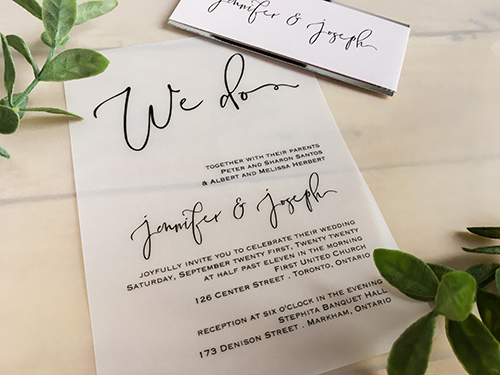 Jennifer & Joseph
We do
TOGETHER WITH THEIR PARENTS
PETER AND SHARON SANTOS
& ALBERT AND MELISSA HERBERT
Jennifer & Joseph
JOYFULLY INVITE YOU TO CELEBRATE THEIR WEDDING
SATURDAY, SEPTEMBER TWENTY FIRST, TWENTY TWENTY
AT HALF PAST ELEVEN IN THE MORNING
FIRST UNITED CHURCH
126 CENTER STREET . TORONTO, ONTARIO
RECEPTION AT SIX O'CLOCK IN THE EVENING
STEPHITA BANQUET HALL
173 DENISON STREET . MARKHAM, ONTARIO